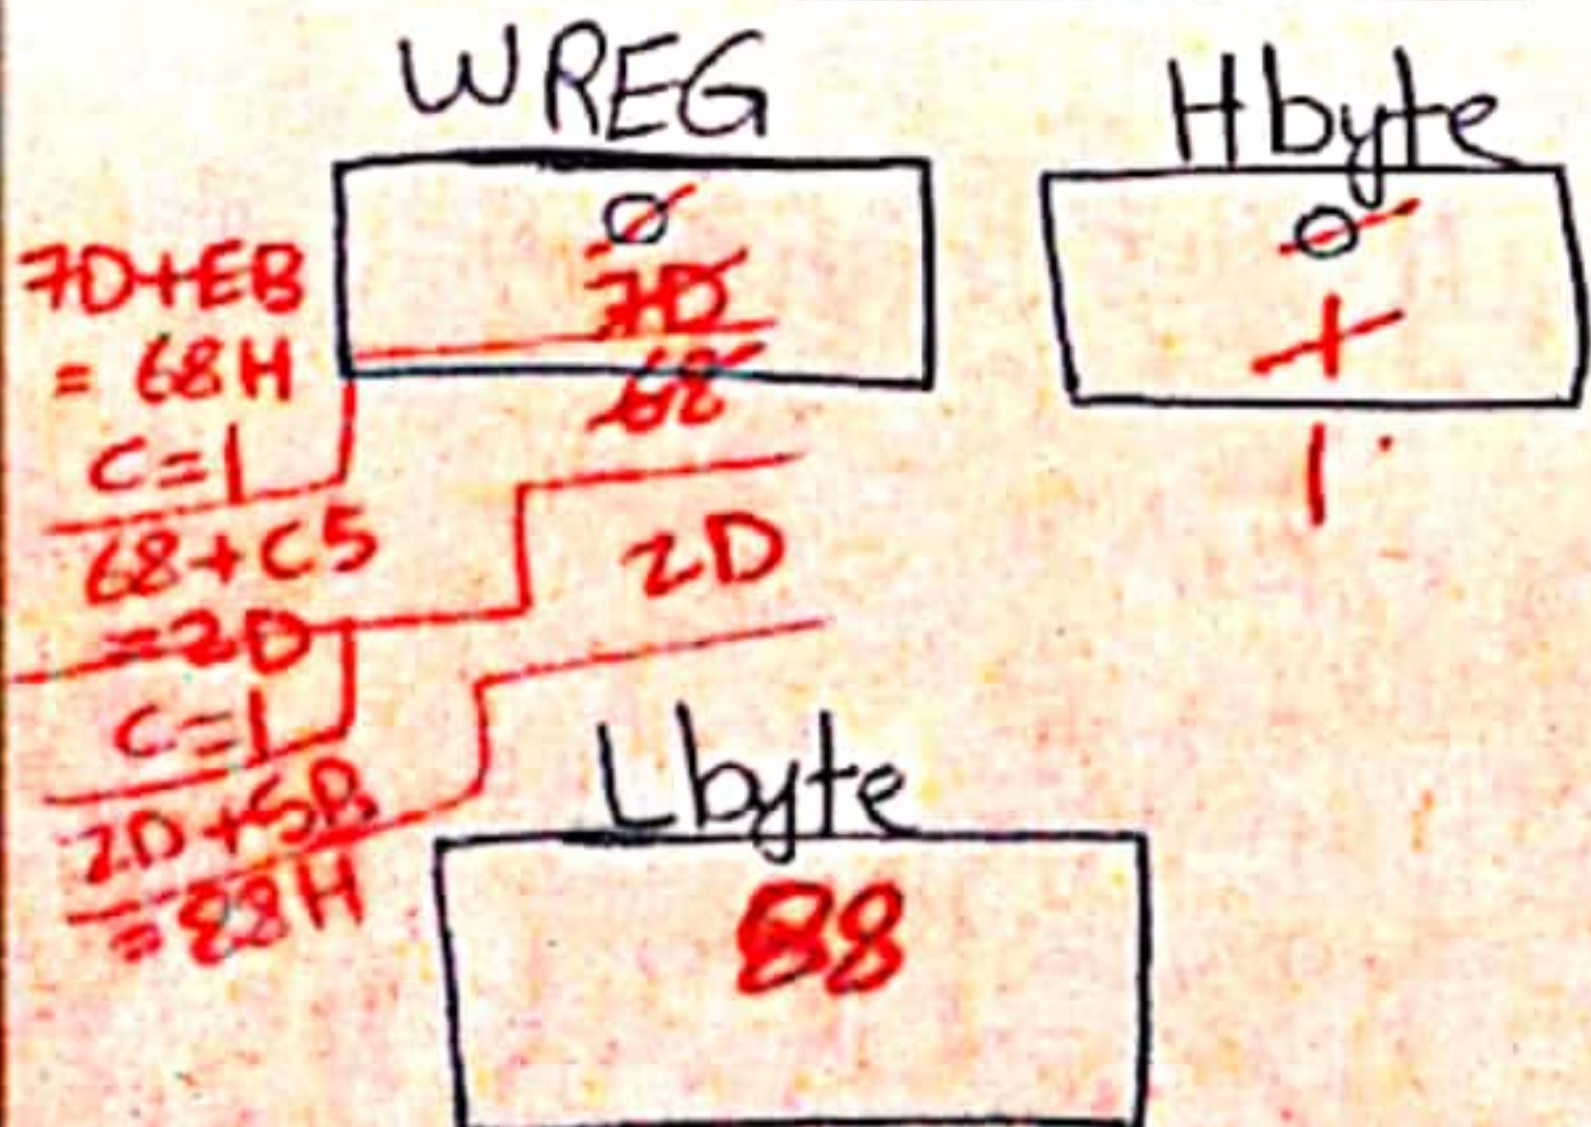 WREG
0
7D
68
2D
Hbyte
0
1
1
7D+EB
= 68H
C=1
68+C5
=2D
C=1
2D+5B
=88H
Lbyte
88